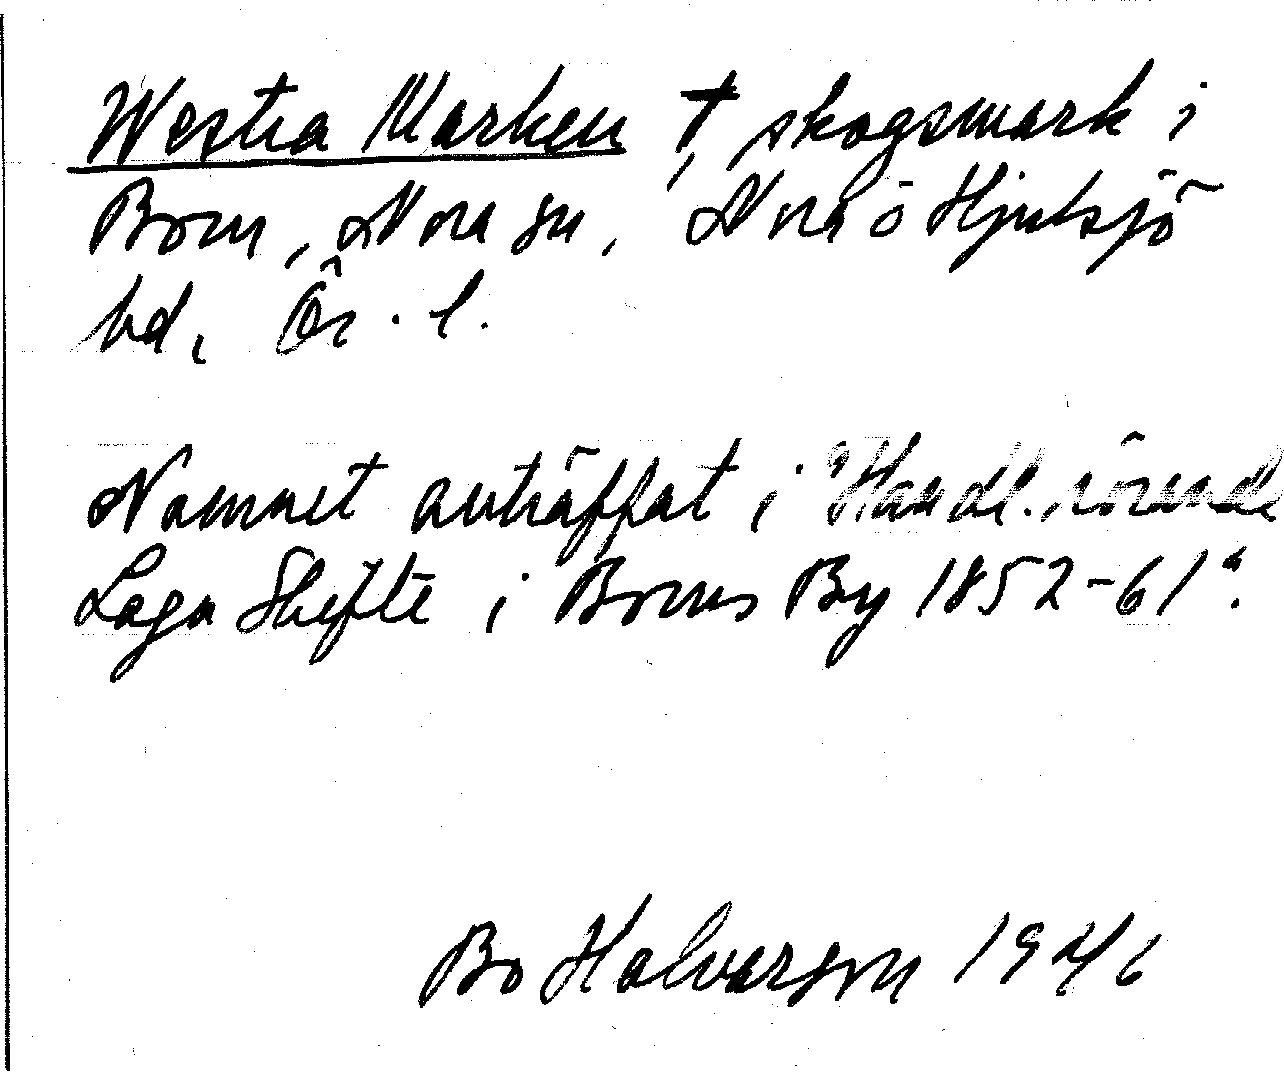 Westra Marken †, skogsmark i
Born, Nora sn, Nora ö Hjulsjö
bd, Ör. l.
Namnet anträffat i "Handl. rörande
Laga Skifte i Borns By 1852-61".
Bo Halvarson 1946